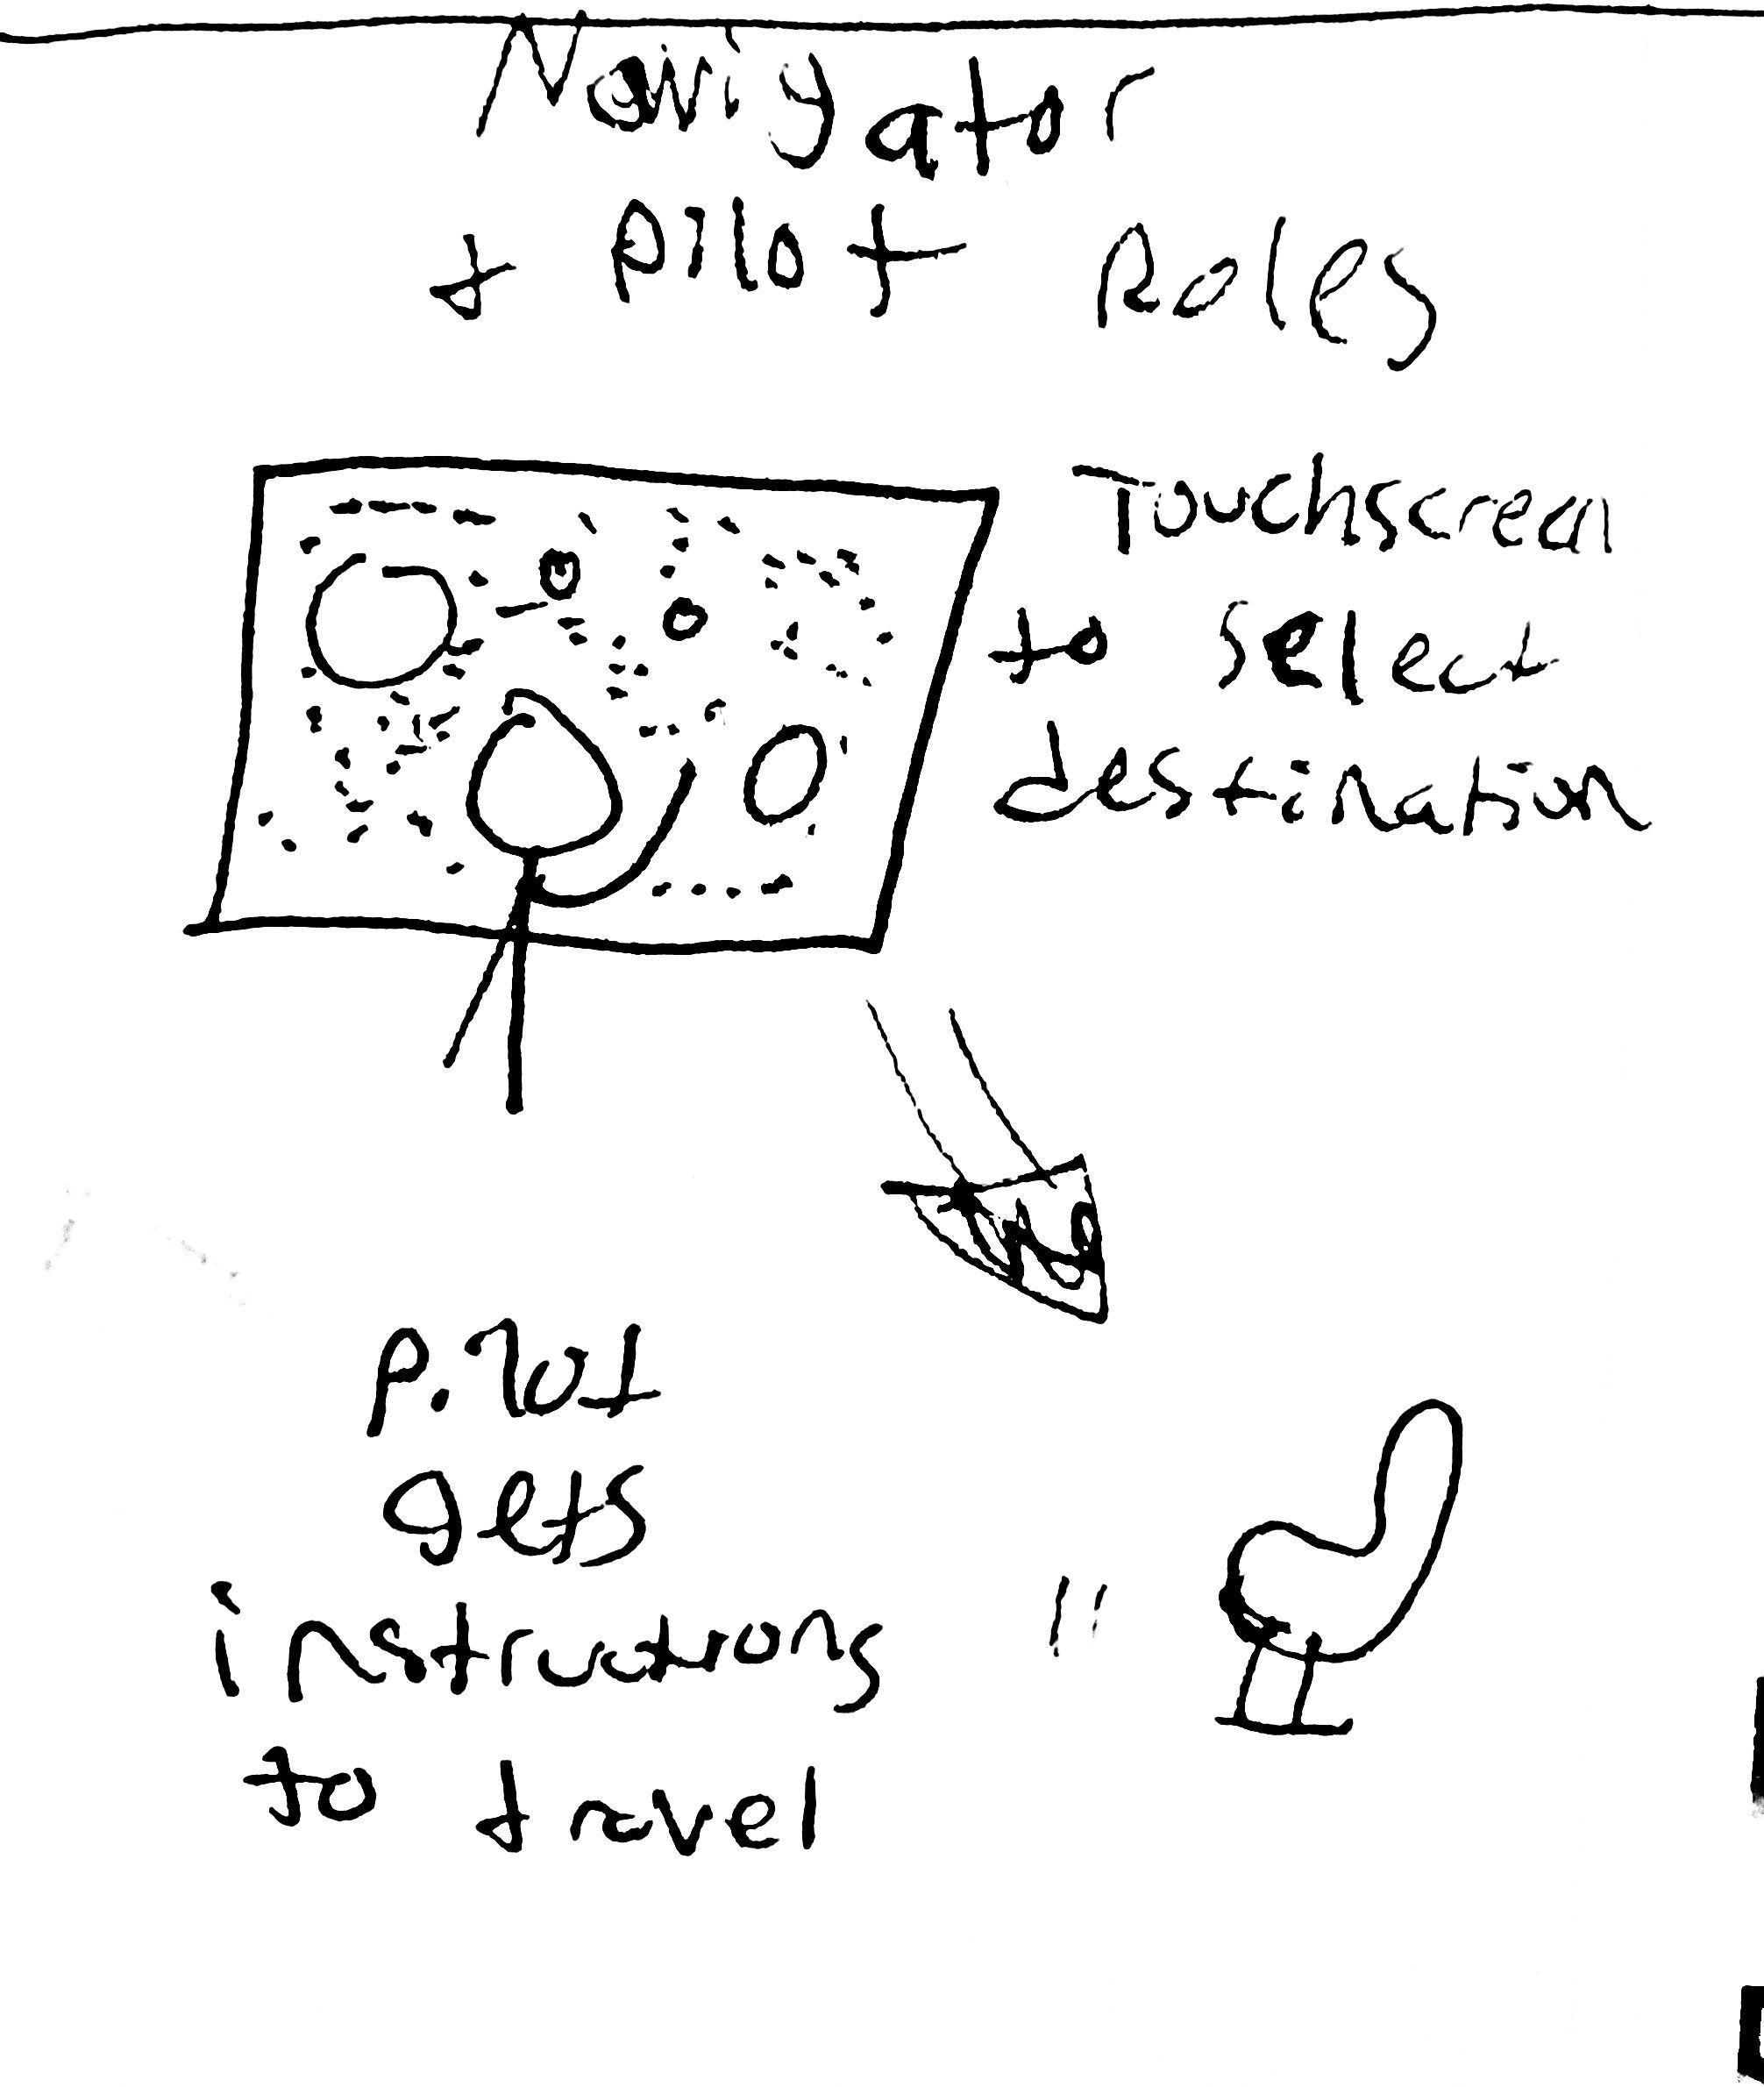 Navigator
+ Pilot Roles
Touchscreen
to select
destination
Pilot
gets
instructions
to travel